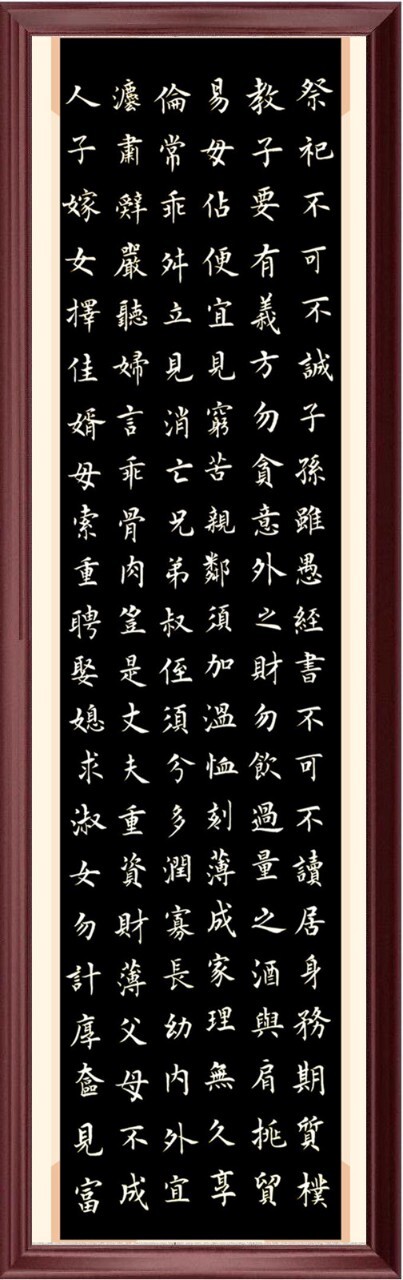 祭祀不可不誠子孫雖愚經書不可不讀居身務期質樸
教子要有義方勿貪意外之財勿飲過量之酒與肩挑貿
易毋佔便宜見窮苦親鄰須加溫恤刻薄成家理無久享
倫常乖舛立見消亡兄弟叔侄須分多潤寡長幼內外宜
灋肅辭嚴聽婦言乖骨肉豈是丈夫重資財薄父母不成
人子嫁女擇佳婿毋索重聘娶媳求淑女勿計厚奩見富